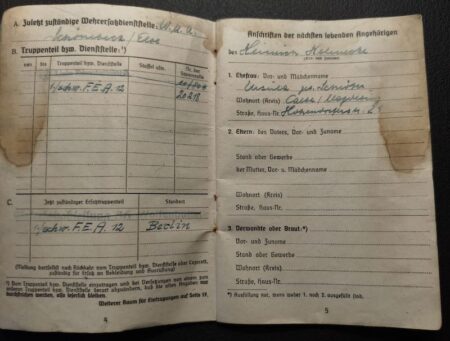 A. Zuletzt zuständige Wehrersatzdienststelle: W. M. A.
Schönebeck/Elbe
B. Truppenteil bzw. Dienststelle:¹)
von bis Truppenteil bzw. Dienststelle Staffel usw. Nr. der
Schw. F.E.A. 12 20218
C. Jetzt zuständiger Ersatztruppenteil Standort
Schw. F.E.A. 12 Berlin
(Meldung dortselbst nach Rückkehr vom Truppenteil bzw. Dienststelle oder Lazarett,
zuständig für Ersatz an Bekleidung und Ausrüstung)
¹) Vom Truppenteil bzw. Dienststelle einzutragen und bei Versetzungen von einem zum
anderen Truppenteil bzw. Dienststelle derart abzuändern, daß die alten Angaben nur
durchstrichen werden, also leserlich bleiben.
Weiterer Raum für Eintragungen auf Seite 17.
4
Anschriften der nächsten lebenden Angehörigen
des Heinrich
(Vor- und Zuname)
1. Ehefrau: Vor- und Mädchenname
Ursula geb.
Wohnort (Kreis)
Straße, Haus-Nr.
2. Eltern: des Vaters, Vor- und Zuname
Stand oder Gewerbe
der Mutter, Vor- u. Mädchenname
Wohnort (Kreis)
Straße, Haus-Nr.
3. Verwandte oder Braut:*)
Vor- und Zuname
Stand oder Gewerbe
Wohnort (Kreis)
Straße, Haus-Nr.
*) Ausfüllung nur, wenn weder 1. noch 2. ausgefüllt sind.
5